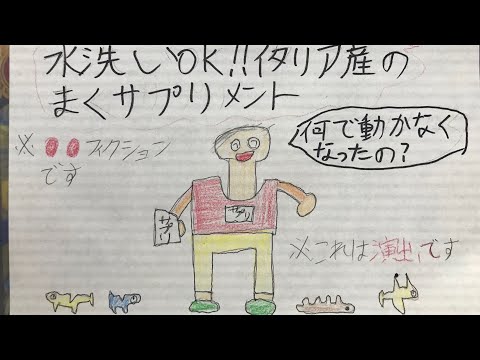 水洗いOK!!イタリア産の
まくサプリメント
何で動かなく
なったの?
※ フィクション
です
サプリ
サプリ
※これは演出です